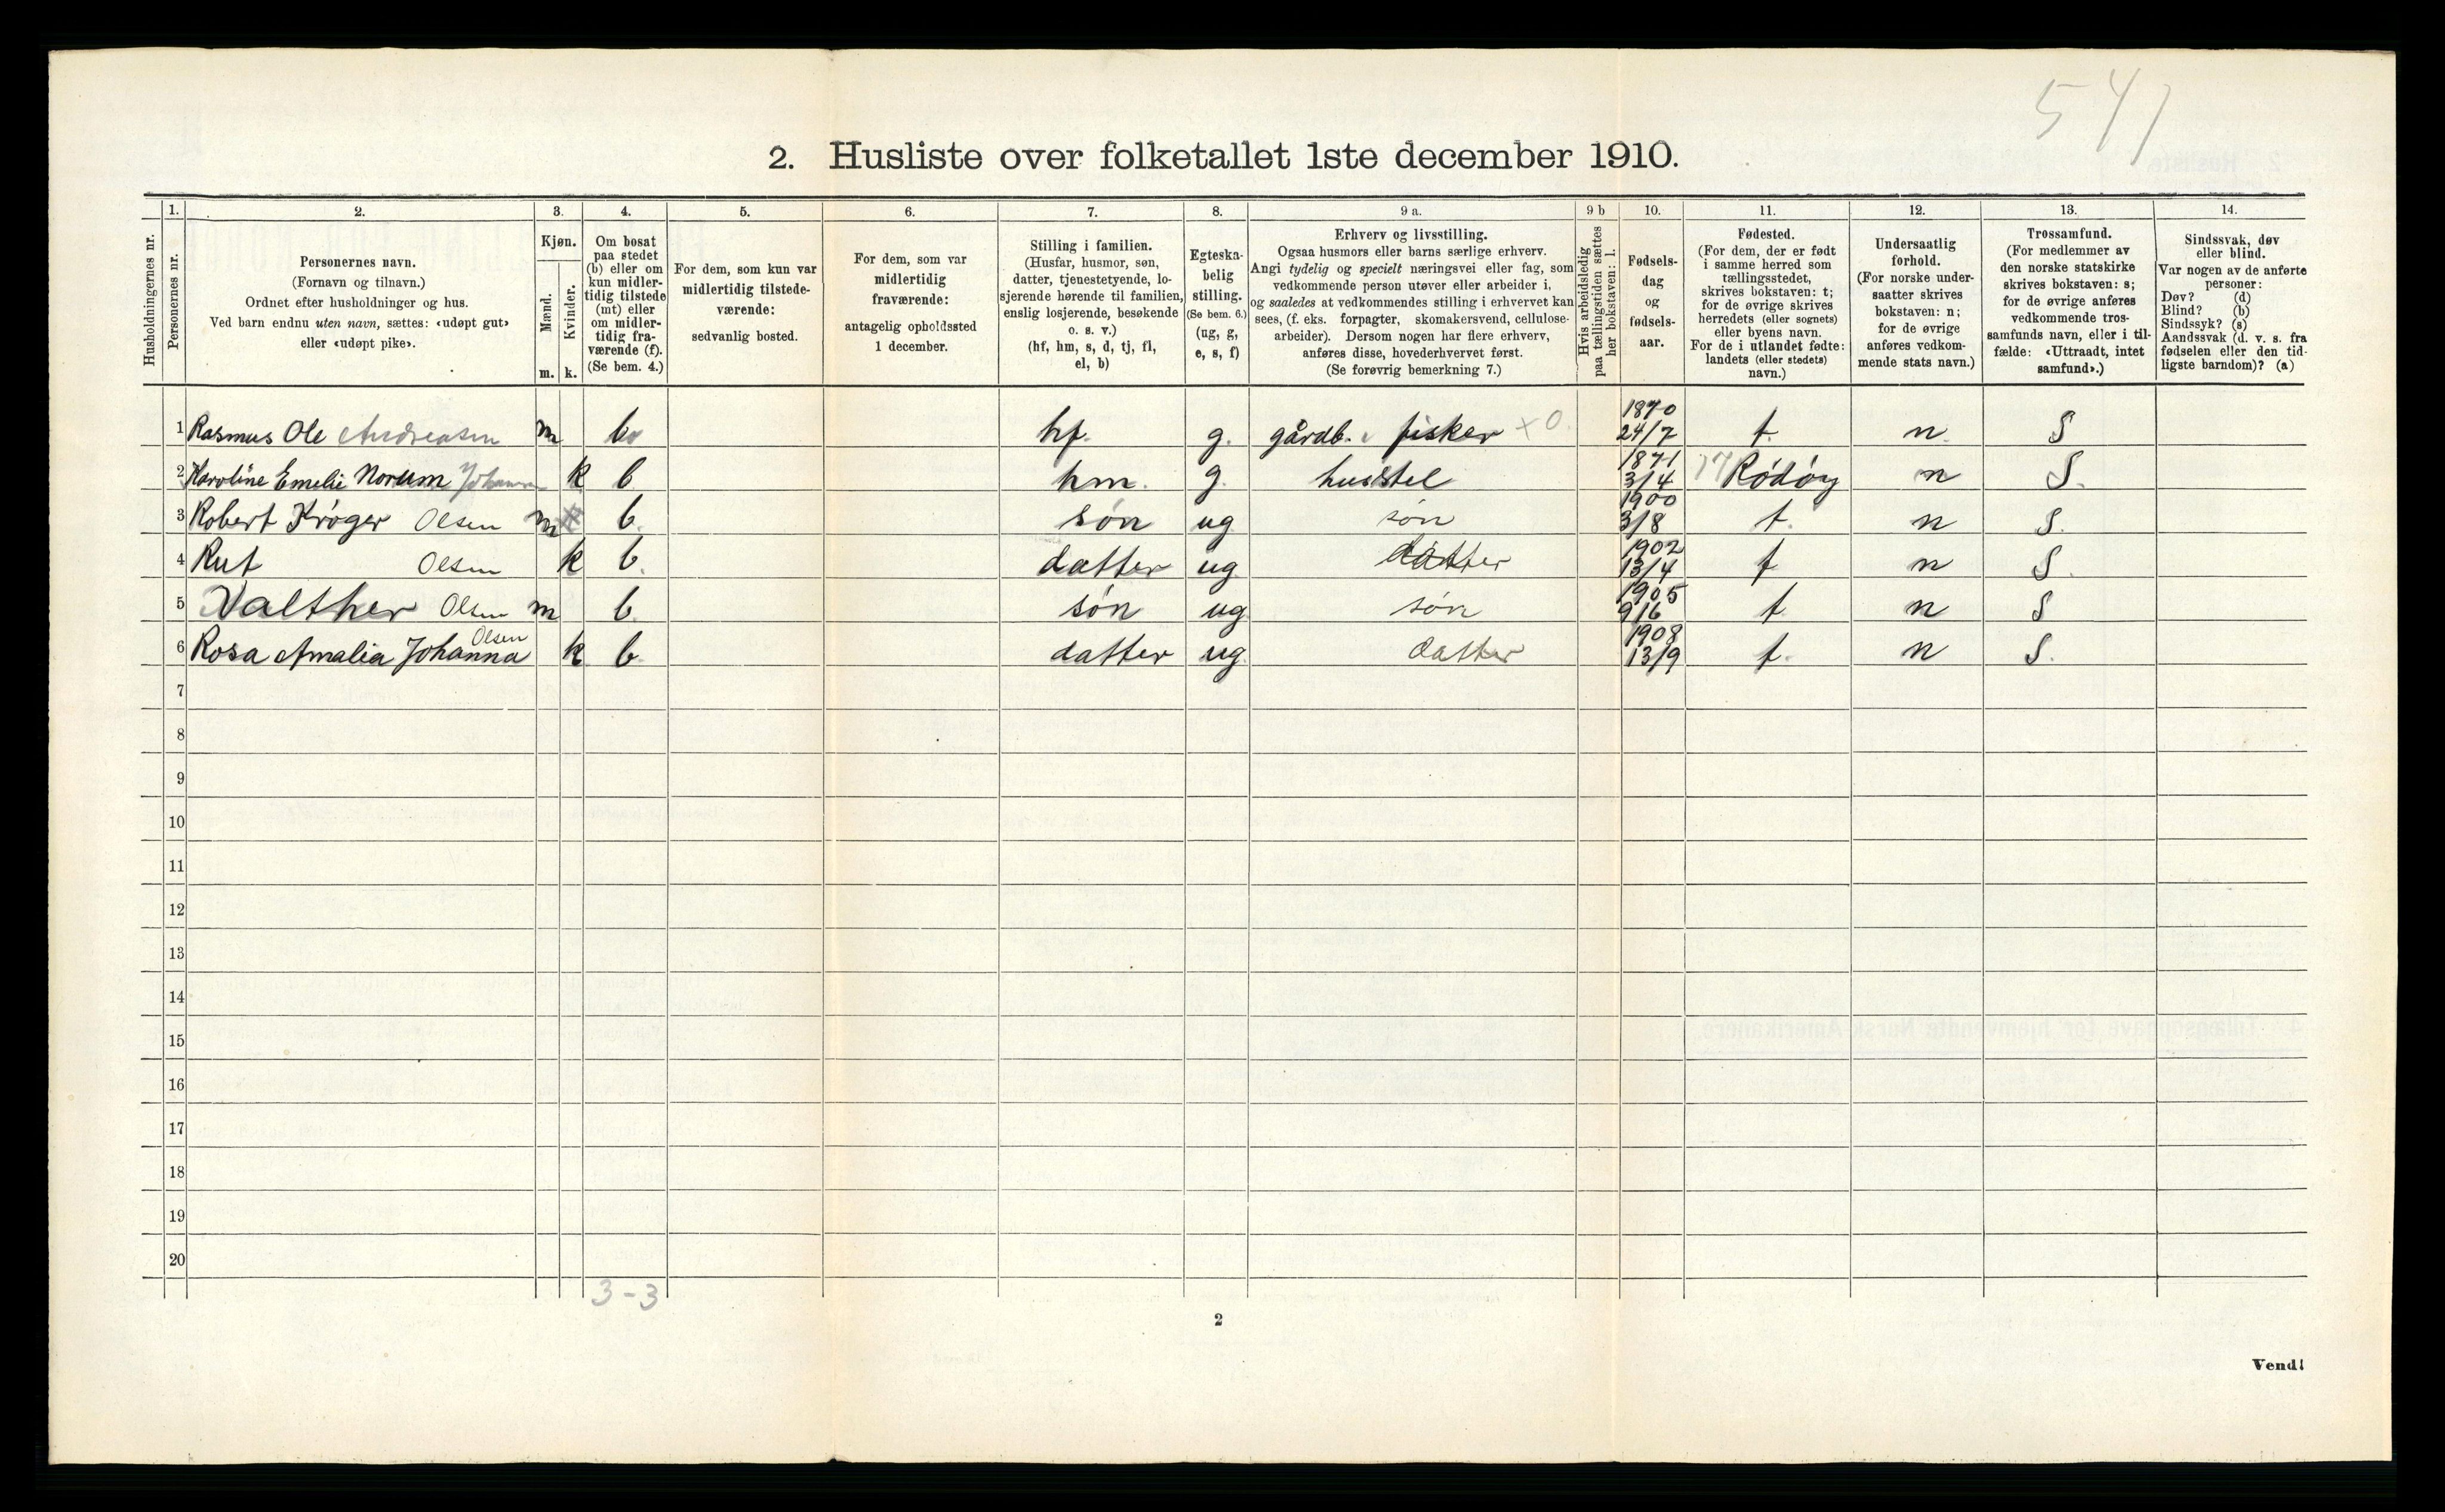 541
2. Husliste over folketallet 1ste december 1910.
Husholdningernes nr.
1. Personernes nr.
2. Personernes navn.
(Fornavn og tilnavn.)
Ordnet efter husholdninger og hus.
Ved barn endnu uten navn, sættes: «udøpt gut»
eller «udøpt pike».
3. Kjøn.
Mænd. m.
Kvinder. k.
4. Om bosat
paa stedet
(b) eller om
kun midler-
tidig tilstede
(mt) eller
om midler-
tidig fra-
værende (f).
(Se bem. 4.)
5. For dem, som kun var
midlertidig tilstede-
værende:
sedvanlig bosted.
6. For dem, som var
midlertidig
fraværende:
antagelig opholdssted
1 december.
7. Stilling i familien.
(Husfar, husmor, søn,
datter, tjenestetyende, lo-
sjerende hørende til familien,
enslig losjerende, besøkende
o. s. v.)
(hf, hm, s, d, tj, fl,
el, b)
8. Egteska-
belig
stilling.
(Se bem. 6.)
(ug, g,
e, s, f)
9 a. Erhverv og livsstilling.
Ogsaa husmors eller barns særlige erhverv.
Angi tydelig og specielt næringsvei eller fag, som
vedkommende person utøver eller arbeider i,
og saaledes at vedkommendes stilling i erhvervet kan
sees, (f. eks. forpagter, skomakersvend, cellulose-
arbeider). Dersom nogen har flere erhverv,
anføres disse, hovederhvervet først.
(Se forøvrig bemerkning 7.)
9 b Hvis arbeidsledig
paa tællingstiden sættes
her bokstaven: l.
10. Fødsels-
dag
og
fødsels-
aar.
11. Fødested.
(For dem, der er født
i samme herred som
tællingsstedet,
skrives bokstaven: t;
for de øvrige skrives
herredets (eller sognets)
eller byens navn.
For de i utlandet fødte:
landets (eller stedets)
navn.)
12. Undersaatlig
forhold.
(For norske under-
saatter skrives
bokstaven: n;
for de øvrige
anføres vedkom-
mende stats navn.)
13. Trossamfund.
(For medlemmer av
den norske statskirke
skrives bokstaven: s;
for de øvrige anføres
vedkommende tros-
samfunds navn, eller i til-
fælde: «Uttraadt, intet
samfund».)
14. Sindssvak, døv
eller blind.
Var nogen av de anførte
personer:
Døv? (d)
Blind? (b)
Sindssyk? (s)
Aandssvak (d. v. s. fra
fødselen eller den tid-
ligste barndom)? (a)
1 Rasmus Ole Andreasen m b hf. g. gårdb. fisker x0. 1870 24/7 t. n. S
2 Karoline Emelie Norum k b hm. g. husstel 1871 3/4 17 Rödöy n S.
3 Robert Kröger Olsen m b. sön ug sön 1900 3/8 t. n S.
4 Rut Olsen k b. datter ug datter 1902 13/4 t n S.
5 Valther Olsen m b. sön ug sön 1905 9/6 t. n S
6 Rosa Amalia Johanna Olsen k b. datter ug datter 1908 13/9 t. n S.
7
8
9
10
11
12
13
14
15
16
17
18
19
20
3-3
2
Vend!